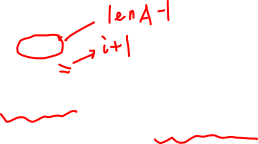 lenA-1
= i+1